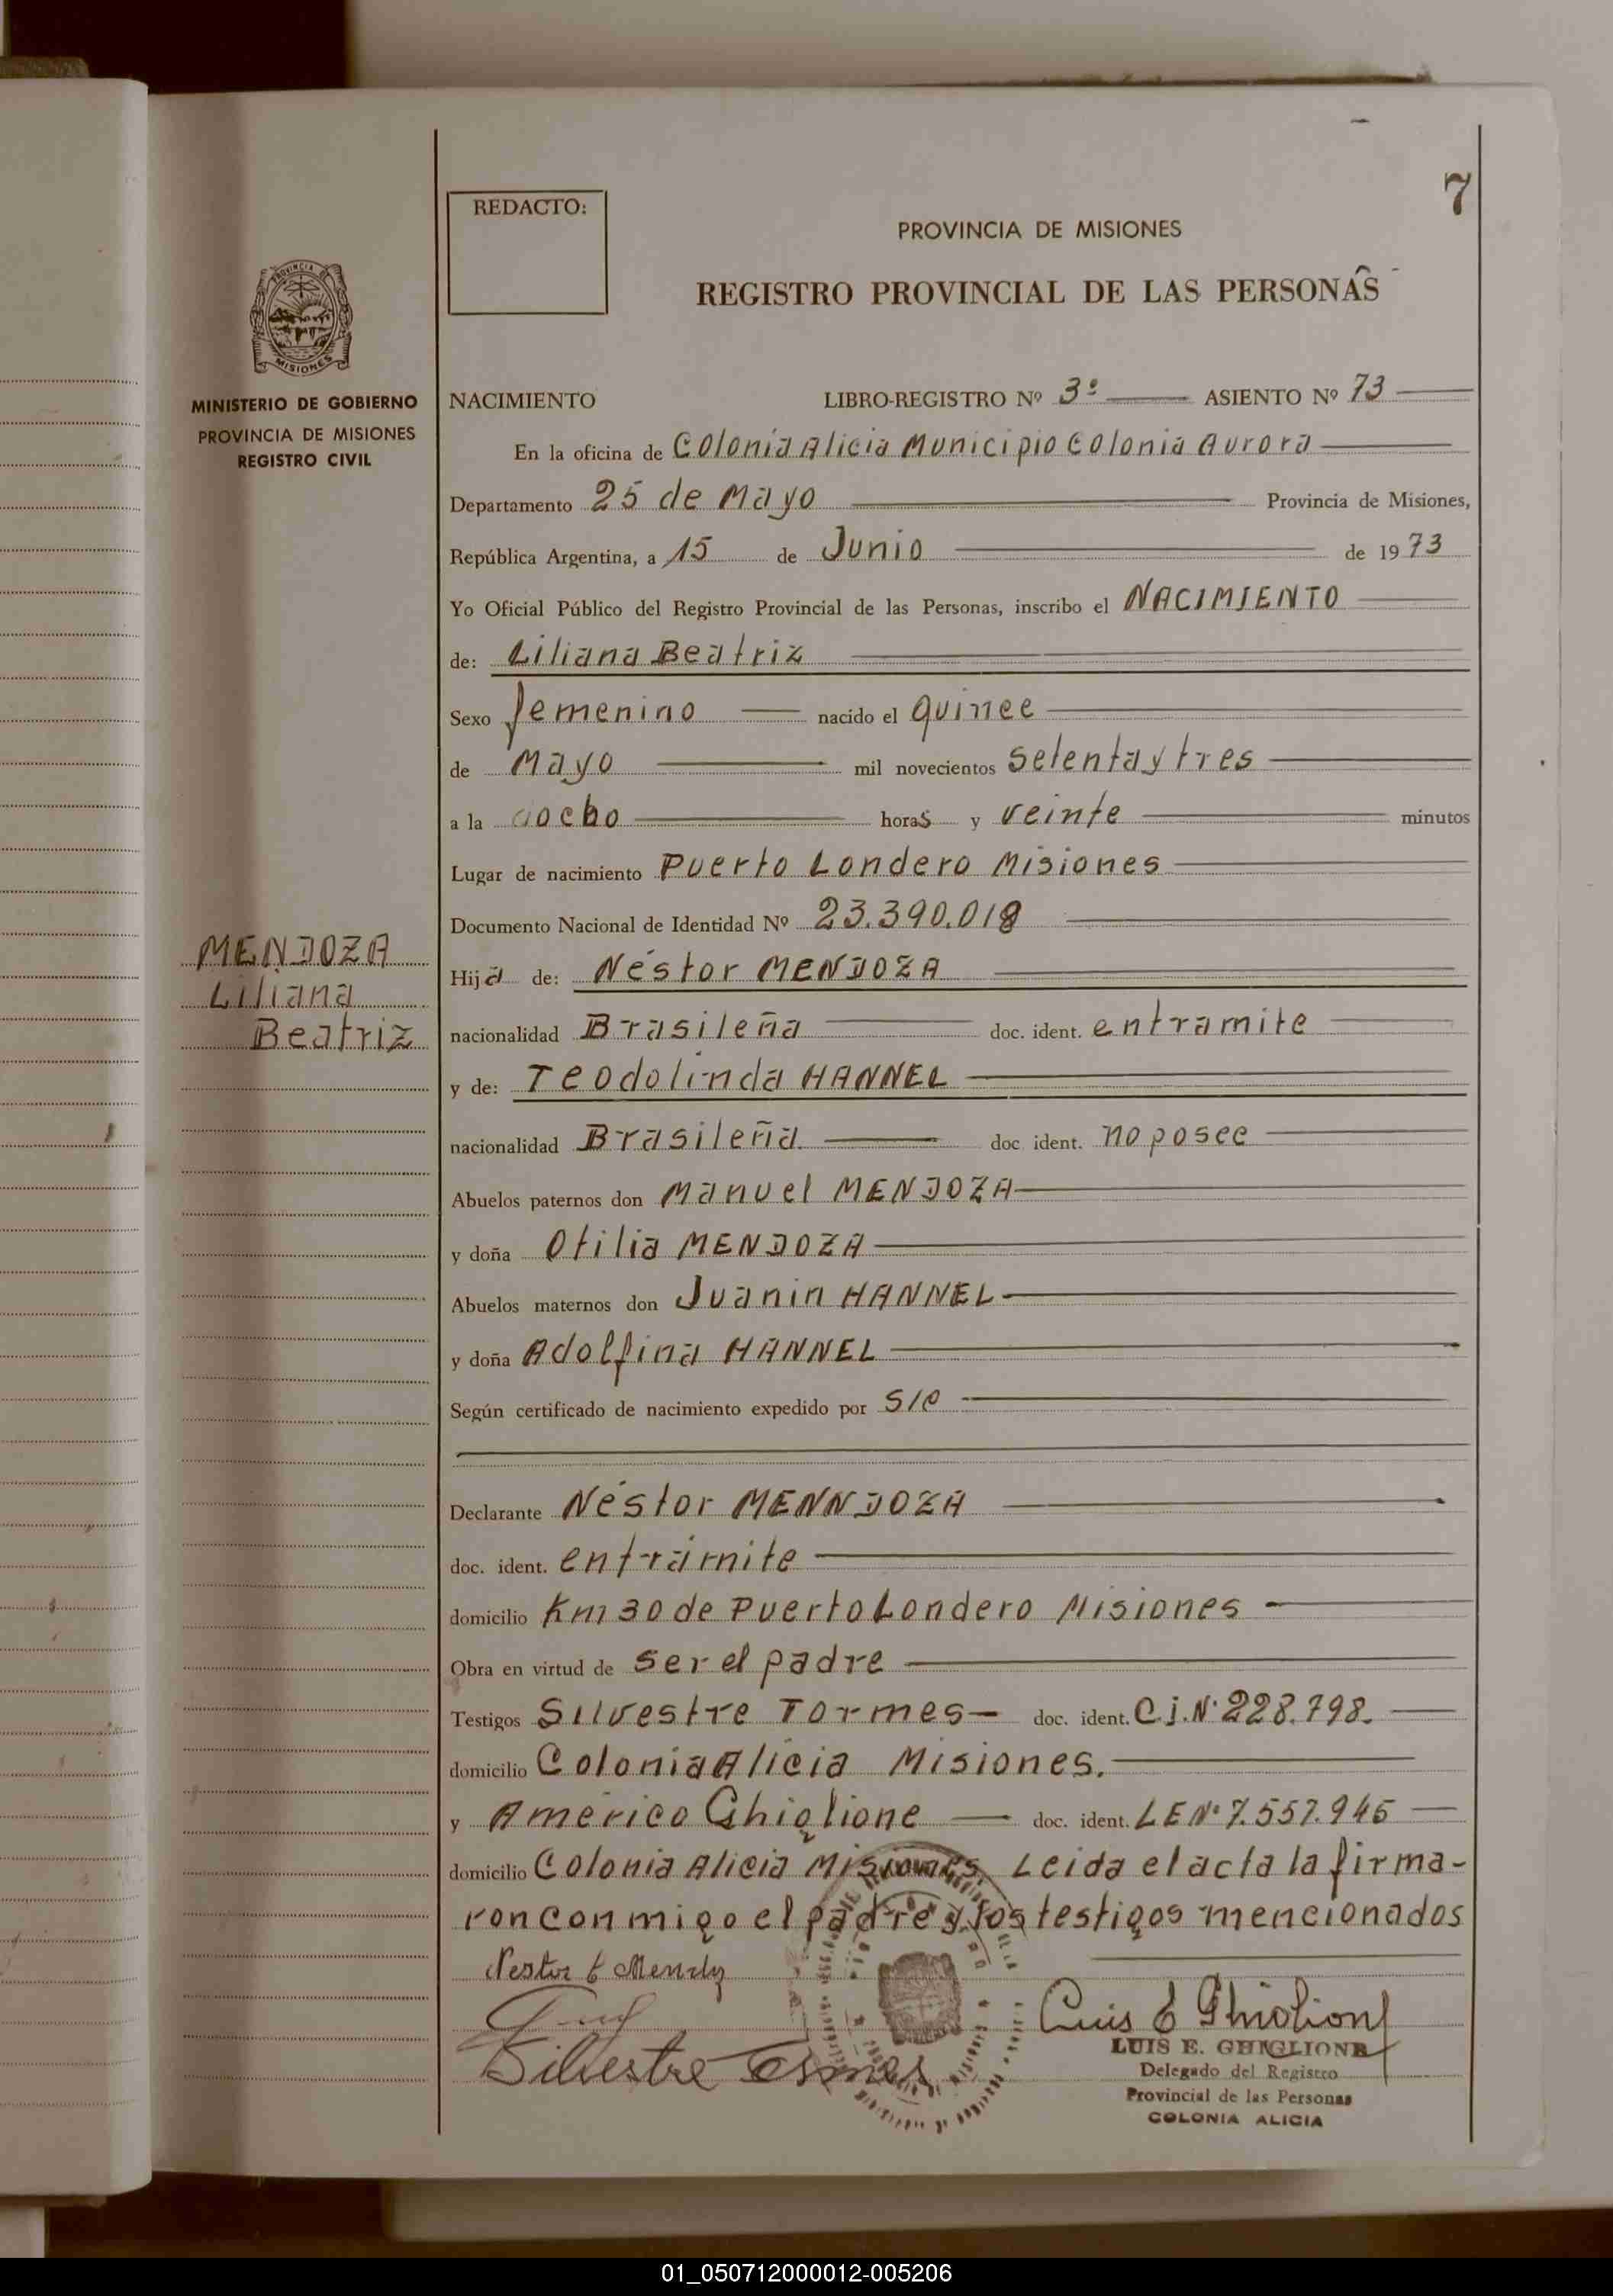 7
REDACTO:
PROVINCIA DE MISIONES
REGISTRO PROVINCIAL DE LAS PERSONAS
PROVINCIA DE
MISIONES
MINISTERIO DE GOBIERNO
PROVINCIA DE MISIONES
REGISTRO CIVIL
MENDOZA
Liliana
Beatriz
NACIMIENTO LIBRO-REGISTRO Nº 3º ASIENTO Nº 73
En la oficina de Colonia Alicia Municipio Colonia Aurora
Departamento 25 de Mayo Provincia de Misiones,
República Argentina, a 15 de Junio de 1973
Yo Oficial Público del Registro Provincial de las Personas, inscribo el NACIMIENTO
de: Liliana Beatriz
Sexo femenino nacido el quince
de Mayo mil novecientos setenta y tres
a la ocho horas y veinte minutos
Lugar de nacimiento Puerto Londero Misiones
Documento Nacional de Identidad Nº 23.390.018
Hija de: Néstor MENDOZA
nacionalidad Brasileña doc. ident. entramite
y de: Teodolinda HANNEL
nacionalidad Brasileña doc. ident. no posee
Abuelos paternos don Manuel MENDOZA
y doña Otilia MENDOZA
Abuelos maternos don Juanin HANNEL
y doña Adolfina HANNEL
Según certificado de nacimiento expedido por S/C
Declarante Néstor MENNDOZA
doc. ident. entrámite
domicilio Km 30 de Puerto Londero Misiones
Obra en virtud de ser el padre
Testigos Silvestre Tormes doc. ident. C.i.Nº 228.798.
domicilio Colonia Alicia Misiones.
y Américo Ghiglione doc. ident. LE Nº 7.557.945
domicilio Colonia Alicia Misiones. Leida el acta la firma-
ron conmigo el padre y los testigos mencionados
Nestor Mendoz
Silvestre Tormes
Luis E Ghiglione
LUIS E. GHIGLIONE
Delegado del Registro
Provincial de las Personas
COLONIA ALICIA
01_050712000012-005206